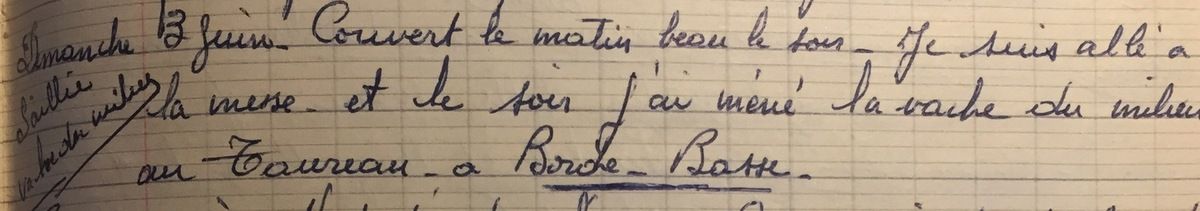 Dimanche 3 Juin - Couvert le matin beau le soir - Je suis allé a
la messe - et le soir j'ai méné la vache du milieu
au Taureau - a Borde - Basse -
Saillie
vache du milieu